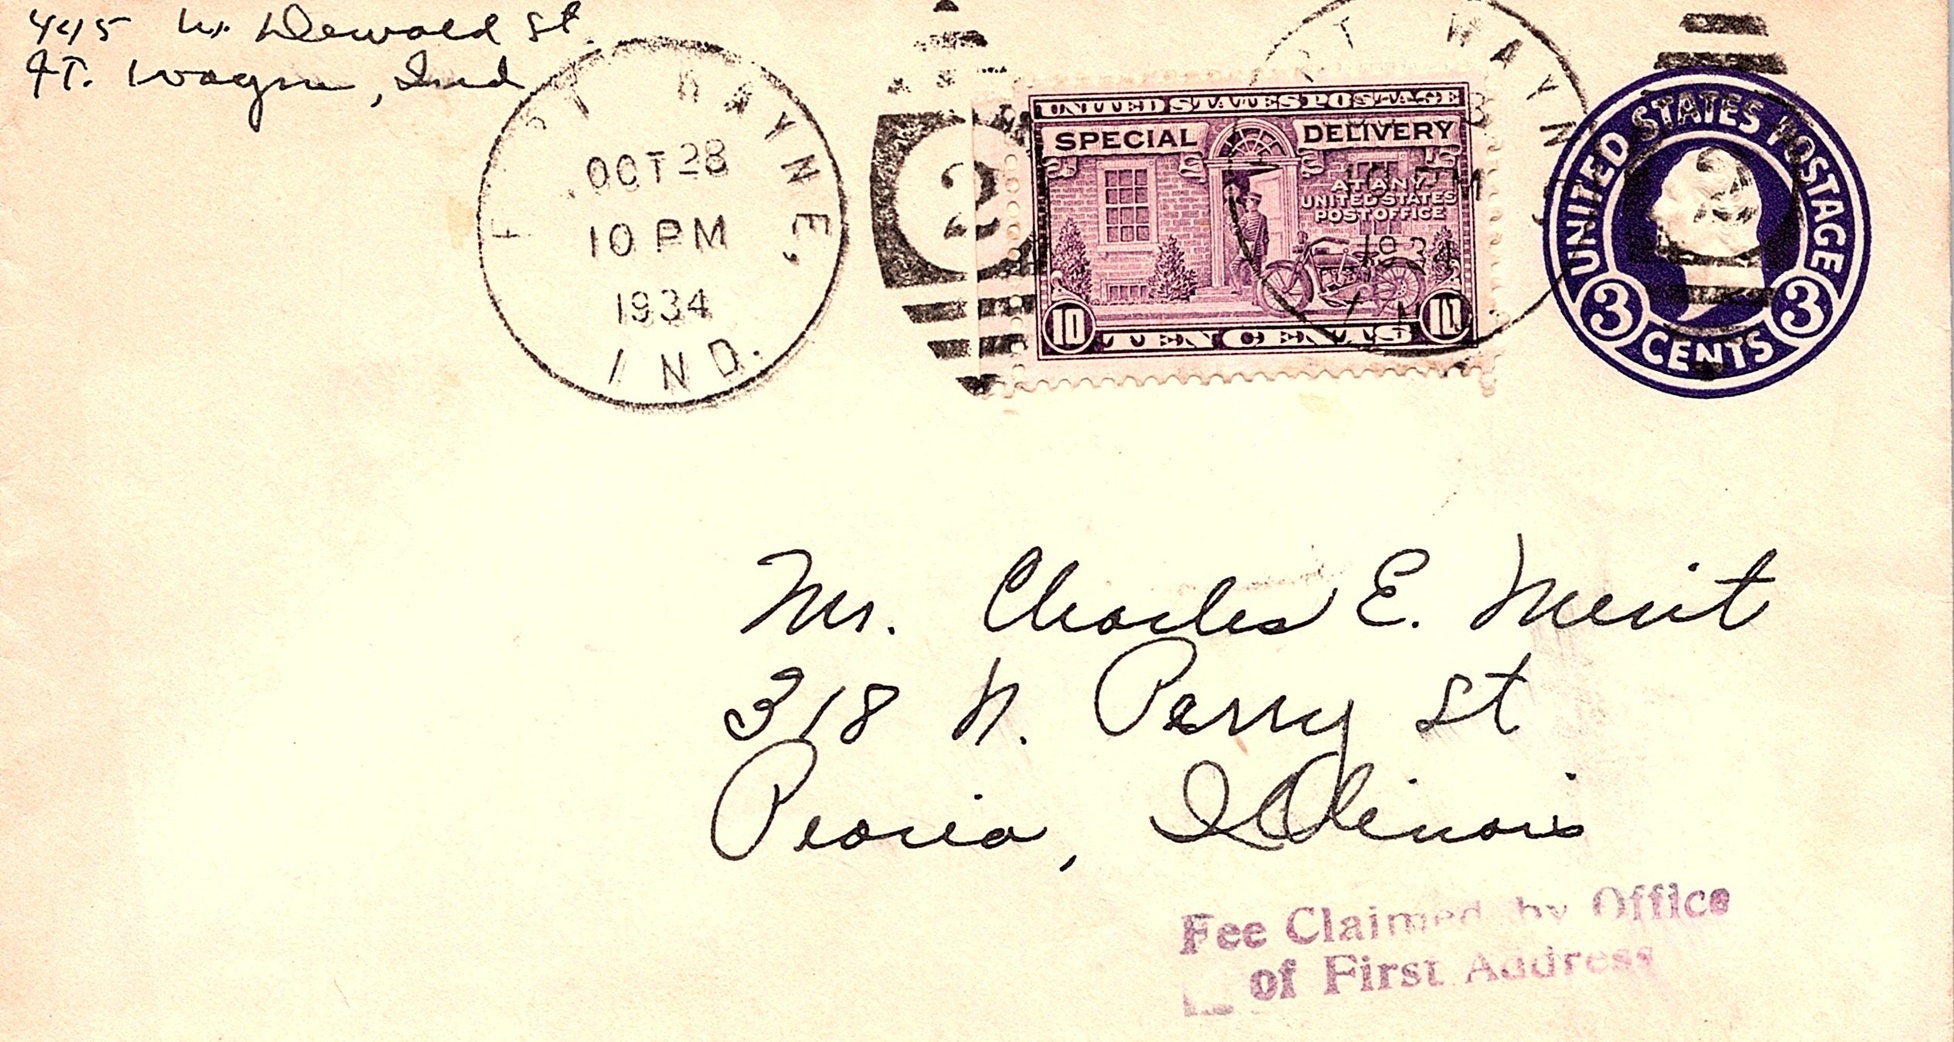 445 W. Dewald St.
Ft. Wayne, Ind
FORT WAYNE,
OCT 28
10 PM
1934
IND.
2
UNITED STATES POSTAGE
SPECIAL DELIVERY
AT ANY
UNITED STATES
POST OFFICE
10 TEN CENTS 10
RT WAYN
1934
IN
2
UNITED STATES POSTAGE
3 CENTS 3
Mr. Charles E. Merit
318 N. Perry St
Peoria, Illinois
Fee Claimed by Office
of First Address